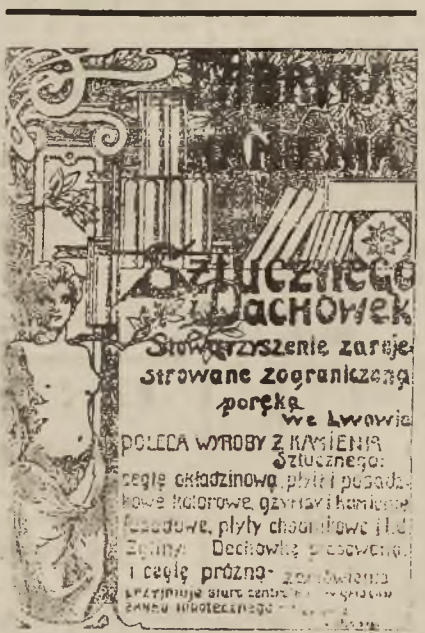 FABRYKA
KAMIENIA
Sztucznego
i DACHÓWEK
Stowarzyszenie zareje-
strowane z ograniczoną
poręką
we Lwowie
POLECA WYROBY Z KAMIENIA
Sztucznego:
cegłę okładzinową, płytki posadz-
kowe kolorowe, gzymsy i kamienie
fasadowe, płyty chodnikowe i t.d.
Dachówkę prasowaną
i cegłę próżną- zamówienia
przyjmuje biuro